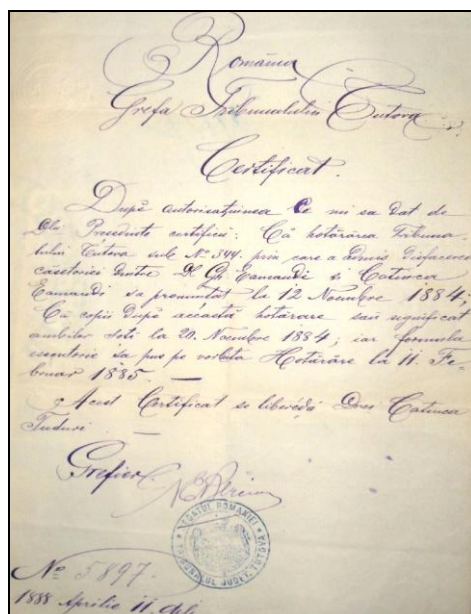 România
Grefa Tribunalului Tutova
Certificat.
După autorisațiunea ce mi sa dat de
Președinte certifică: Că hotărârea Tribuna-
lului Tutova sub No. 344. prin care a admis disfacerea
căsetoriei dintre D. Gh. Eamandi si Catinca
Eamandi sa pronunțat la 12 Noembre 1884.
Că copii după această hotărâre sau significat
ambilor soti la 20. Noembre 1884; iar formula
esecutorie sa pus pe vorbita Hotărâre la 11. Fe-
bruar 1885. —
Acest Certificat se liberédă Dnei Catinca
Tuduri. —
Grefier
TRIBUNALUL JUDEȚ. TUTOVA
No 5897.
1888 Aprilie 11